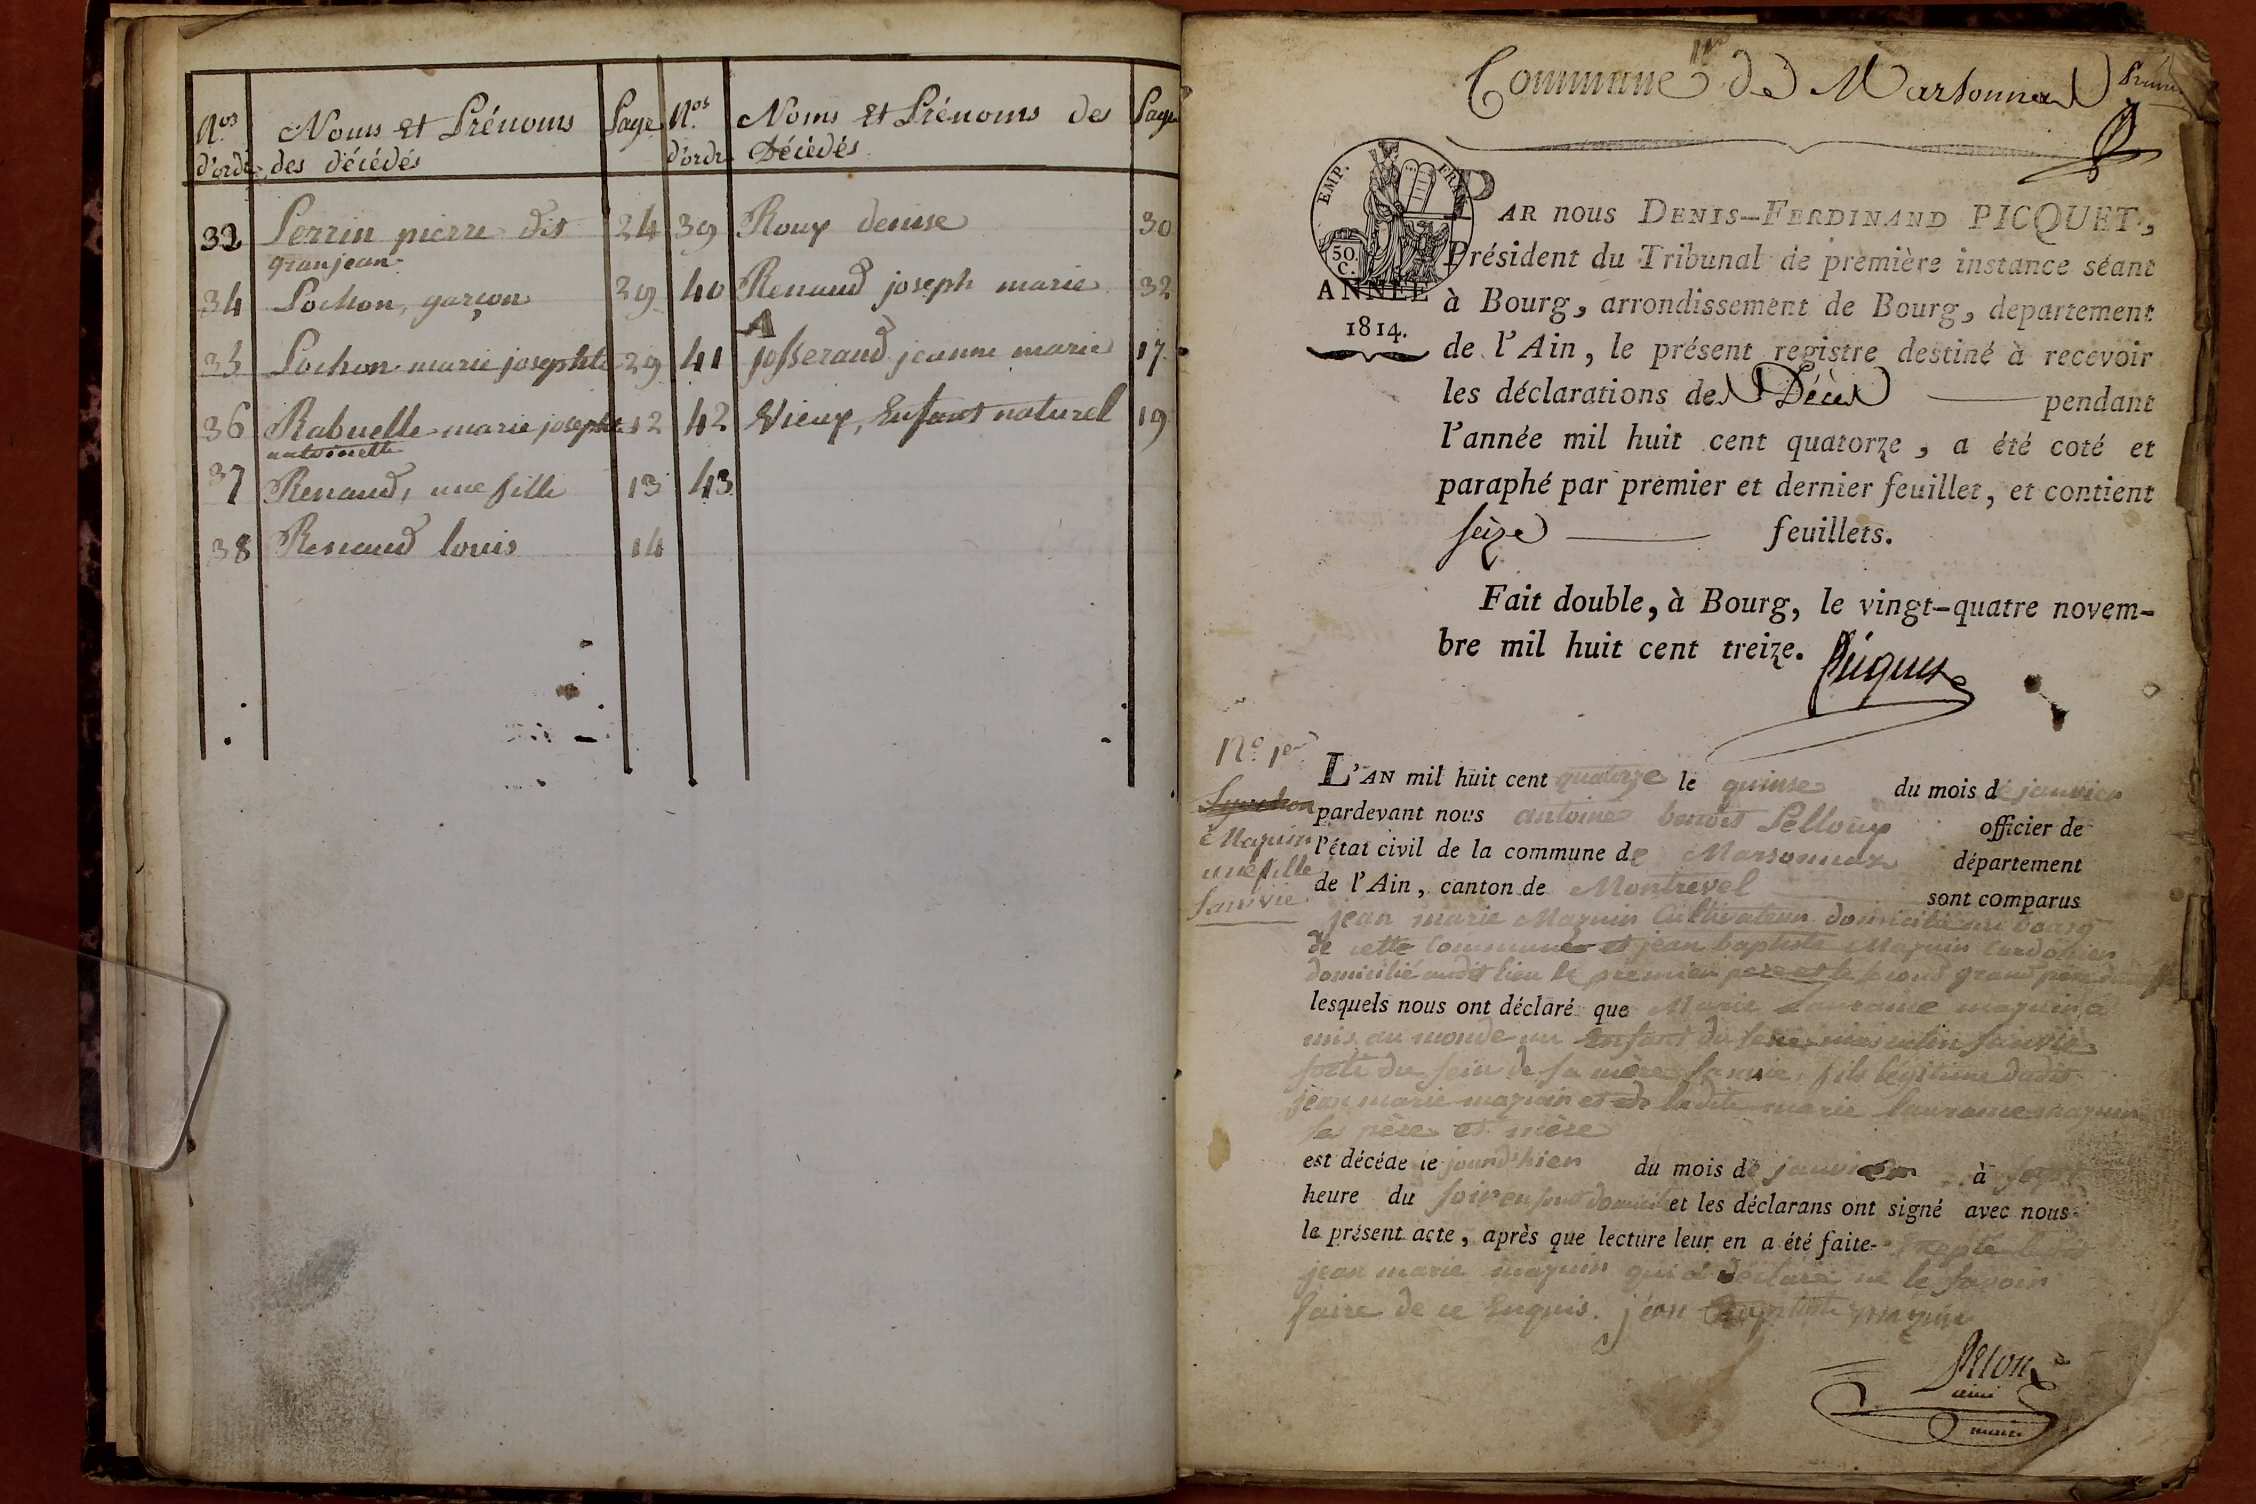 Nos
d'ordre
Noms et Prénoms
des décédés
Page
Nos
d'ordre
Noms et Prénoms des
Décédés
Page
33 Perrin pierre dit 24
granjean
34 Lochon, garçon 29
35 Lochon marie josephte 29
36 Rabuelle marie josephte 12
antoinette
37 Renaud, une fille 13
38 Renaud louis 14
39 Roux denise 30
40 Renaud joseph marie 32
A
41 josserand jeanne marie 17
42 Vieux, Enfant naturel 19
43
Commune de Marsonnas
EMP. FRAN
50.
C.
ANNÉE
1814.
PAR nous DENIS-FERDINAND PICQUET,
Président du Tribunal de première instance séant
à Bourg, arrondissement de Bourg, departement
de l'Ain, le présent registre destiné à recevoir
les déclarations de Décès pendant
l'année mil huit cent quatorze, a été coté et
paraphé par premier et dernier feuillet, et contient
seize feuillets.
Fait double, à Bourg, le vingt-quatre novem-
bre mil huit cent treize.
Picquet
No. 1er
Maguin
une fille
sans vie
L'AN mil huit cent quatorze le quinse du mois de janvier
pardevant nous antoine benoit Pelloux officier de
l'état civil de la commune de Marsonnax département
de l'Ain, canton de Montrevel sont comparus
jean marie Maguin Cultivateur domicilié au bourg
de cette Commune et jean baptiste Maguin Cordonier
domicilié audit lieu le premier pere et le second grand pere
lesquels nous ont déclaré que Marie Laurance maguin a
mis au monde un Enfant du sexe masculin sans vie
sorti du sein de sa mère sans vie, fils légitime dudit
jean marie maguin et de ladite marie laurance maguin
ses père et mère
est décéde le jourd'hier du mois de janvier à sept
heure du soir en son domicile et les déclarans ont signé avec nous
le présent acte, après que lecture leur en a été faite
jean marie maguin qui a déclaré ne le savoir
faire de ce Enquis. jean Baptiste maguin
maire